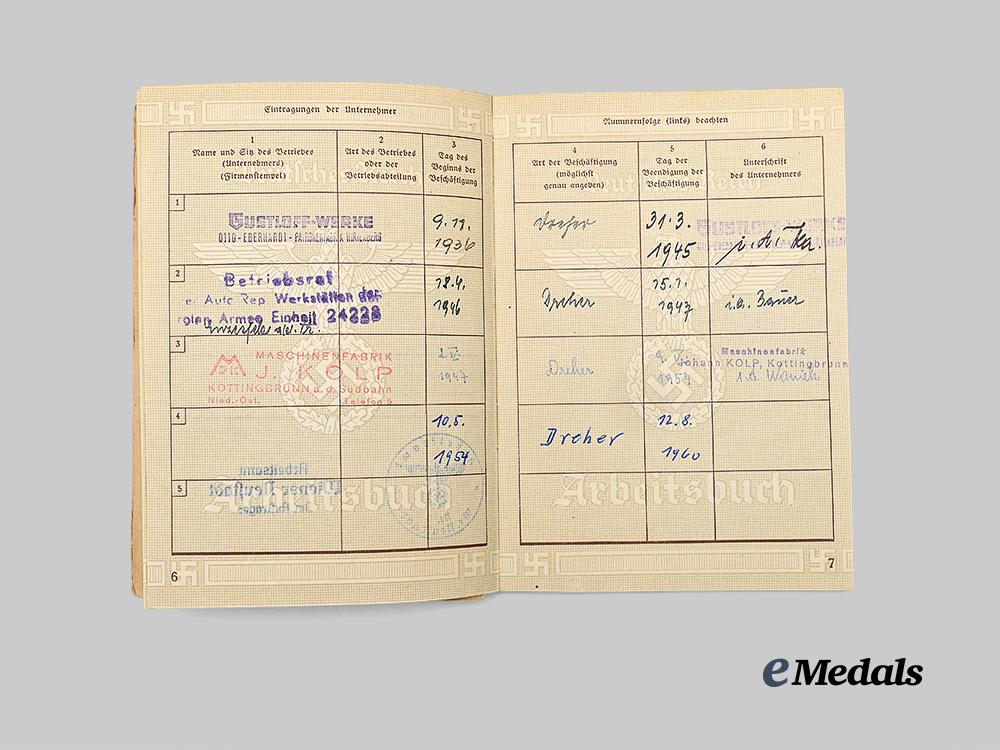 Eintragungen der Unternehmer
1
Name und Sitz des Betriebes
(Unternehmers)
(Firmenstempel)
2
Art des Betriebes
oder der
Betriebsabteilung
3
Tag des
Beginns der
Beschäftigung
1
GUSTLOFF-WERKE
OTTO-EBERHARDT-PATRONENFABRIK HIRTENBERG
9.11.
1936
2
Betriebsrat
Auto Rep Werkstätten der
roten Armee Einheit 24228
1946
3
MASCHINENFABRIK
J. KOLP
KOTTINGBRUNN a. d. Südbahn
Nied.-Öst. Telefon 6
1947
4
10.5.
1954
Arbeitsamt
Wiener Neustadt
5
Arbeitsbuch
6
Nummernfolge (links) beachten
4
Art der Beschäftigung
(möglichst
genau angeben)
5
Tag der
Beendigung der
Beschäftigung
6
Unterschrift
des Unternehmers
Dreher
31.3.
1945
GUSTLOFF-WERKE
Dreher
15.1.
1947
i.a. Bauer
Dreher
1954
Maschinenfabrik
Johann KOLP, Kottingbrunn
Dreher
12.8.
1960
Arbeitsbuch
7
eMedals